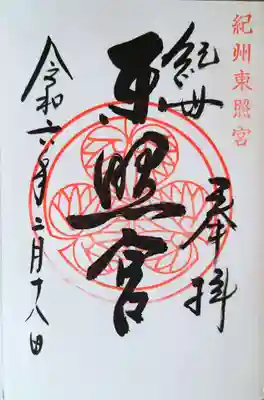 紀州東照宮
奉拝
紀州
東照宮
令和六年二月十八日